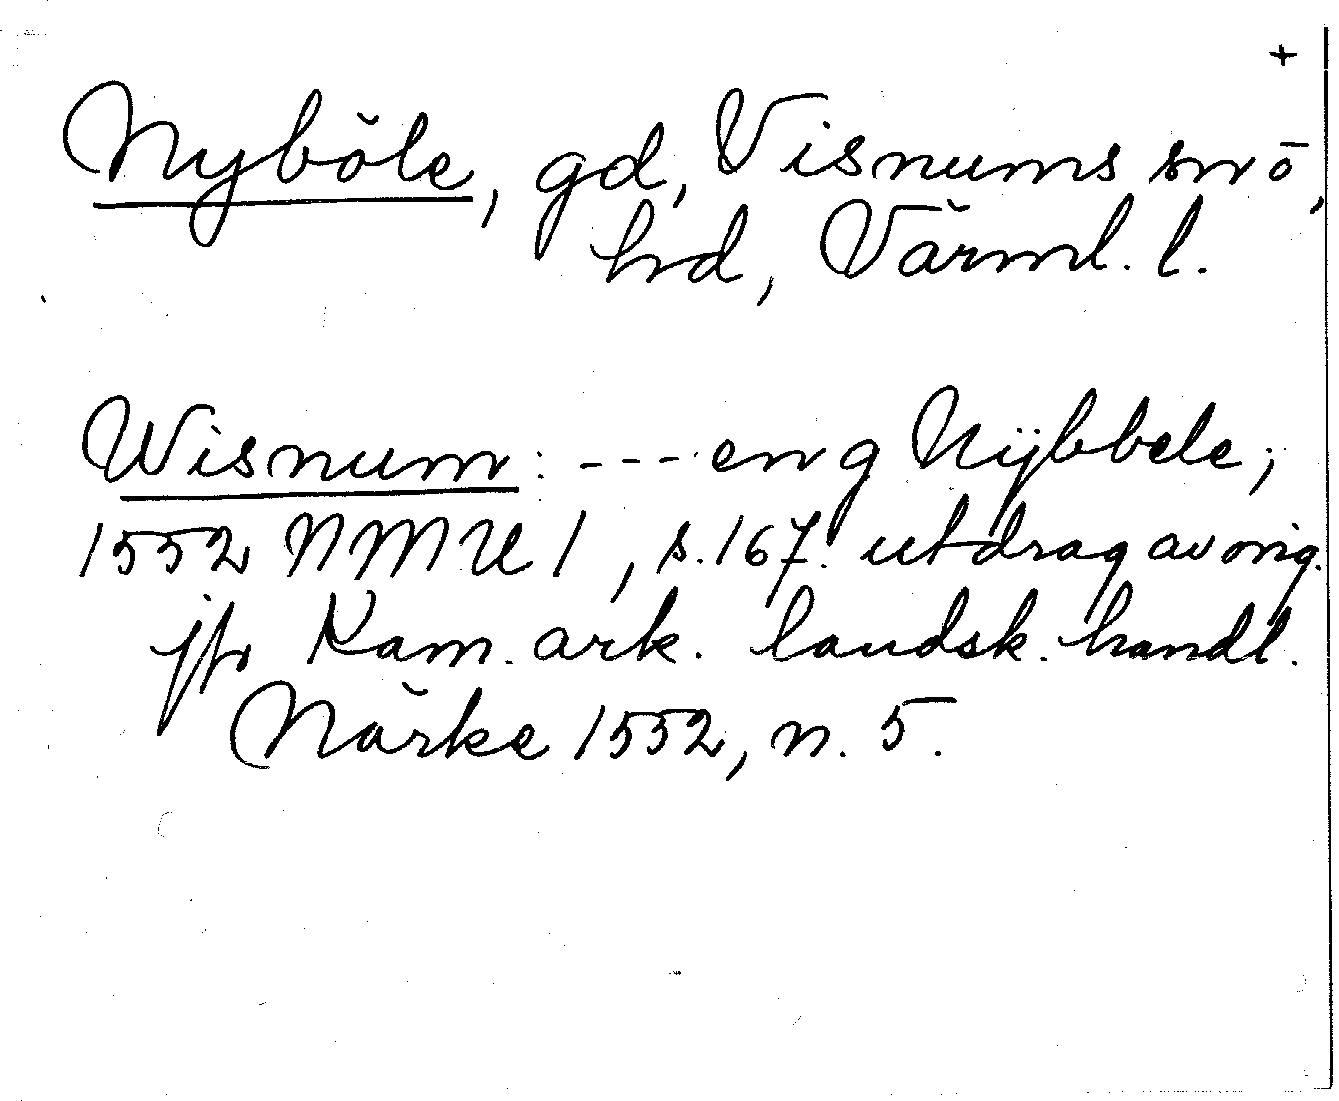 +
Nyböle, gd, Visnums snö,
hd, Värml. l.
Wisnum: --- eng Nÿbbele,
1552 NMU 1, s. 167. utdrag av orig.
jfr Kam. ark. landsk. handl.
Närke 1552, n. 5.